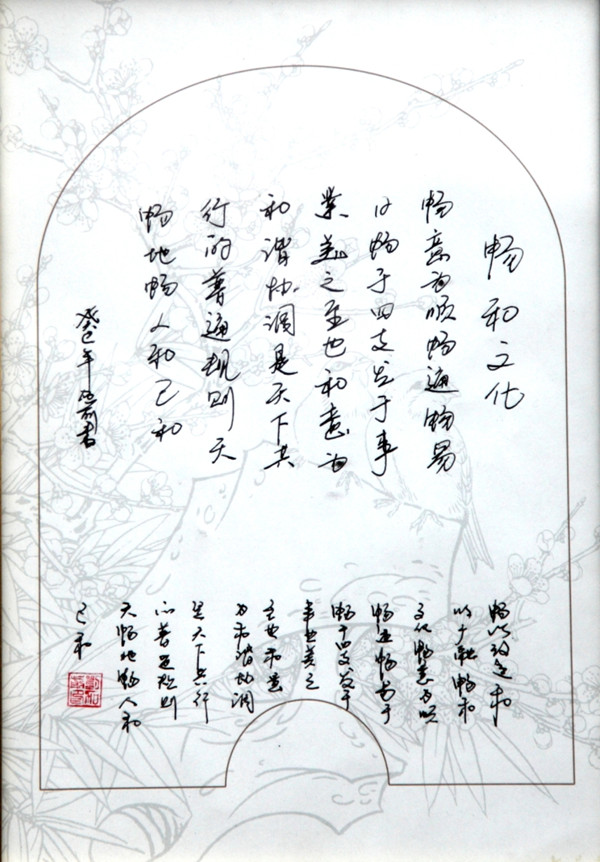 畅和文化
畅意为顺畅通畅易
曰畅于四支发于事
业美之至也和意为
和谐协调是天下共
行的普遍规则天
畅地畅人和己和
癸巳年书
畅以致远和
以融畅和
文化畅意为顺
畅通畅易曰
畅于四支发于
事业美之
至也和意
为和谐协调
是天下共行
的普遍规则
天畅地畅人和
己和